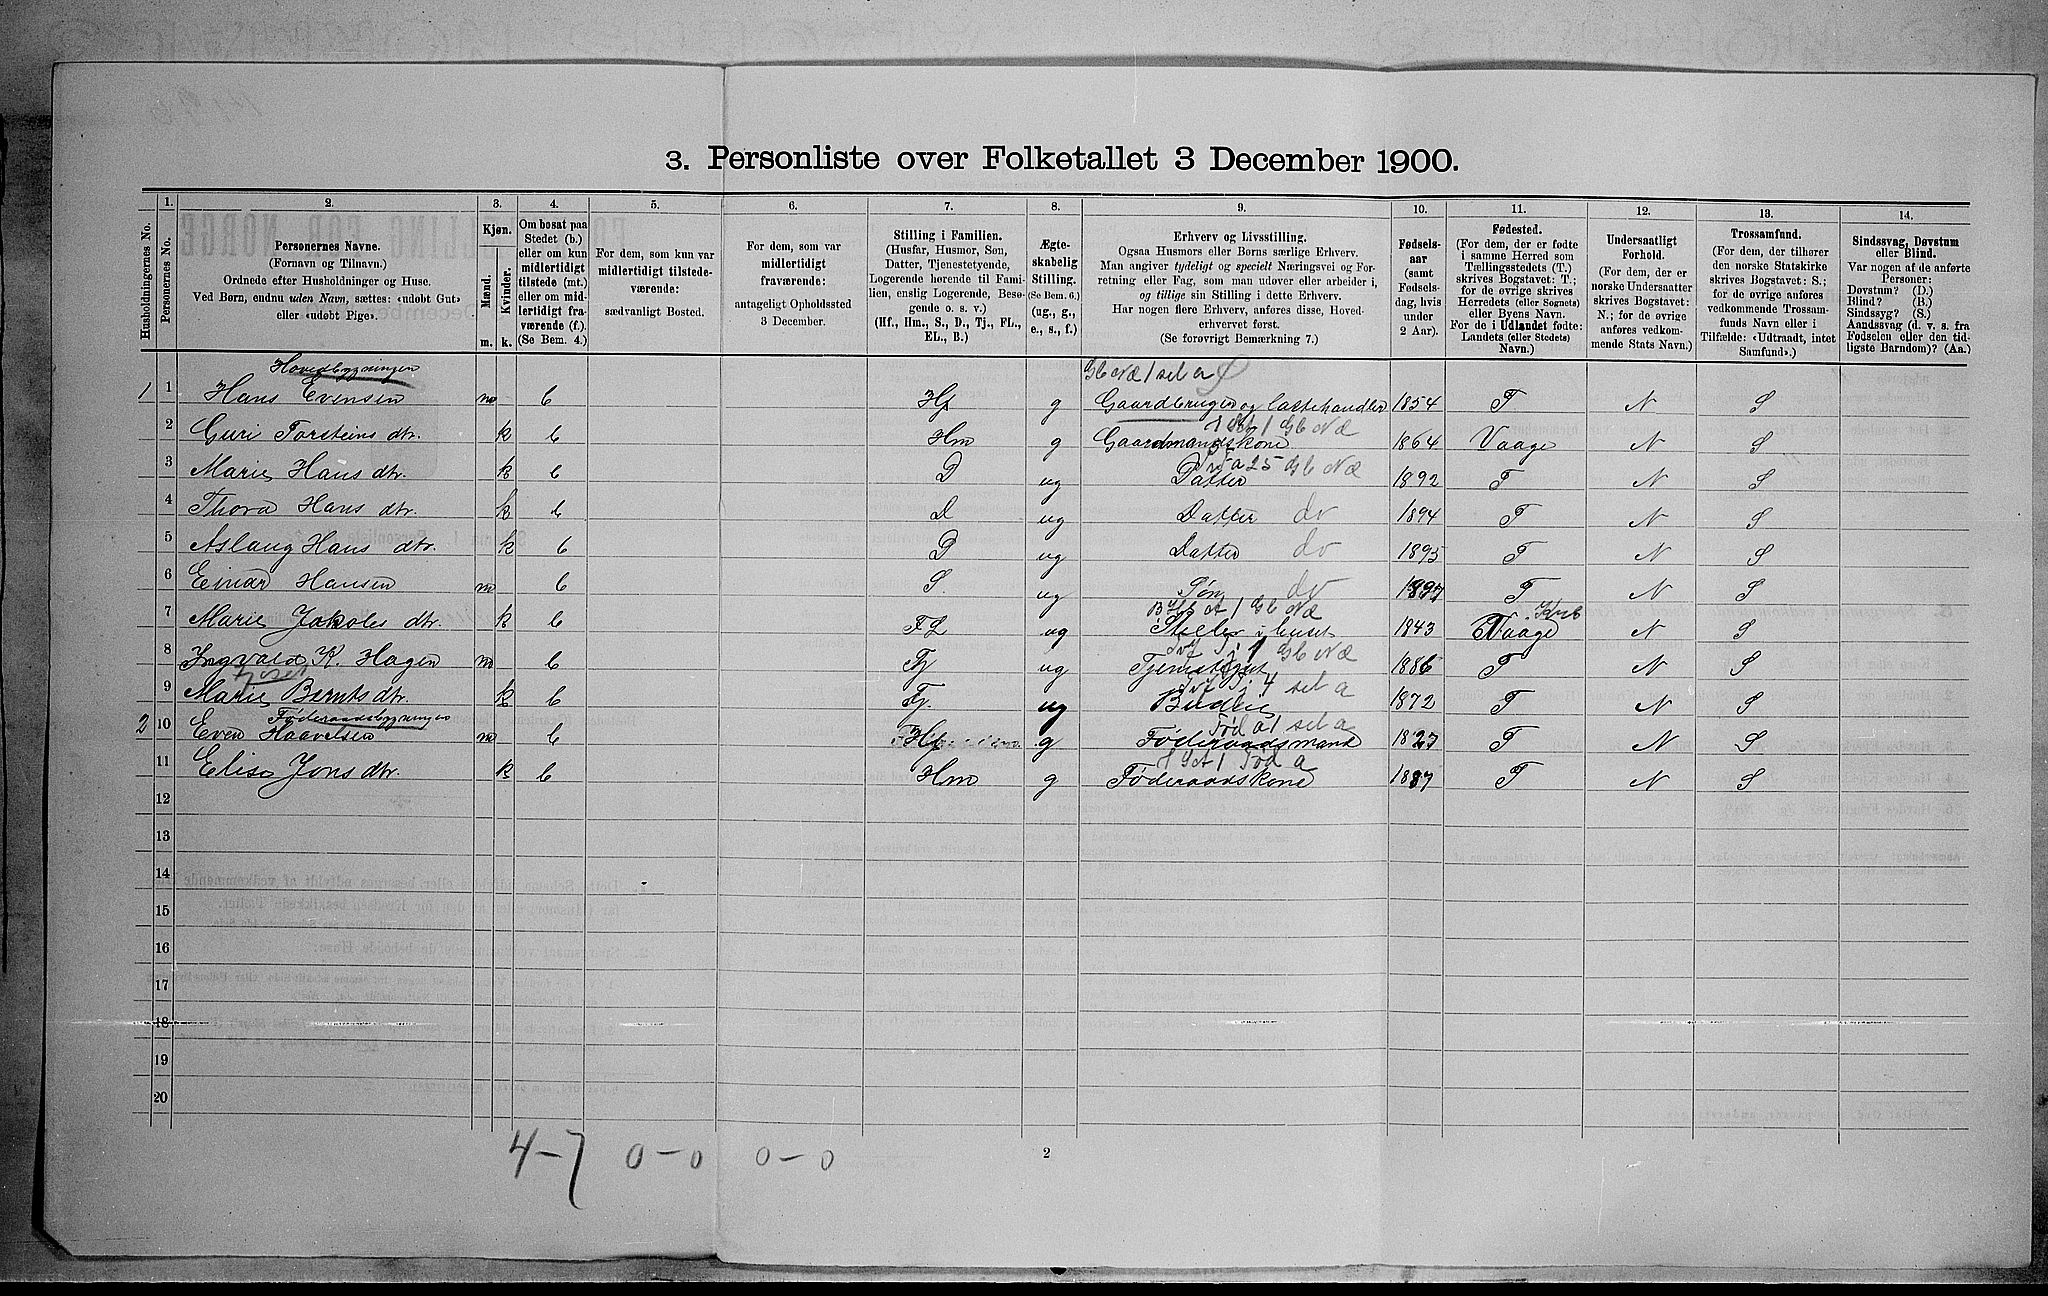 3. Personliste over Folketallet 3 December 1900.
Husholdningernes No.
1.
Personernes No.
2.
Personernes Navne.
(Fornavn og Tilnavn.)
Ordnede efter Husholdninger og Huse.
Ved Børn, endnu uden Navn, sættes: «udøbt Gut»
eller «udøbt Pige».
3.
Kjøn.
Mænd.
Kvinder.
m. k.
4.
Om bosat paa
Stedet (b.)
eller om kun
midlertidigt
tilstede (mt.)
eller om mid-
lertidigt fra-
værende (f.)
(Se Bem. 4.)
5.
For dem, som kun var
midlertidigt tilstede-
værende:
sædvanligt Bosted.
6.
For dem, som var
midlertidigt
fraværende:
antageligt Opholdssted
3 December.
7.
Stilling i Familien.
(Husfar, Husmor, Søn,
Datter, Tjenestetyende,
Logerende hørende til Fami-
lien, enslig Logerende, Besø-
gende o. s. v.)
(Hf., Hm., S., D., Tj., FL.,
EL., B.)
8.
Ægte-
skabelig
Stilling.
(Se Bem. 6.)
(ug., g.,
e., s., f.)
9.
Erhverv og Livsstilling.
Ogsaa Husmors eller Børns særlige Erhverv.
Man angiver tydeligt og specielt Næringsvei og For-
retning eller Fag, som man udøver eller arbeider i,
og tillige sin Stilling i dette Erhverv.
Har nogen flere Erhverv, anføres disse, Hoved-
erhvervet først.
(Se forøvrigt Bemærkning 7.)
10.
Fødsels-
aar
(samt
Fødsels-
dag, hvis
under
2 Aar).
11.
Fødested.
(For dem, der er fødte
i samme Herred som
Tællingsstedets (T.)
skrives Bogstavet: T.;
for de øvrige skrives
Herredets (eller Sognets)
eller Byens Navn.
For de i Udlandet fødte:
Landets (eller Stedets)
Navn.)
12.
Undersaatligt
Forhold.
(For dem, der er
norske Undersaatter
skrives Bogstavet:
N.; for de øvrige
anføres vedkom-
mende Stats Navn.)
13.
Trossamfund.
(For dem, der tilhører
den norske Statskirke
skrives Bogstavet: S.;
for de øvrige anføres
vedkommende Trossam-
funds Navn eller i
Tilfælde: «Udtraadt, intet
Samfund».)
14.
Sindssvag, Døvstum
eller Blind.
Var nogen af de anførte
Personer:
Døvstum? (D.)
Blind? (B.)
Sindssyg? (S.)
Aandssvag (d. v. s. fra
Fødselen eller den tid-
ligste Barndom)? (Aa.)
Hovedbygningen Gb Næ 1 sel a
1 1 Hans Evensen m b Hf g Gaardbruger og 1854 T N S
1 Gb Næ
2 Guri Torsteins dtr. k b Hm g Gaardmandskone 1864 Vaage N S
a 25 Gb Næ
3 Marie Hans dtr. k b D ug Datter 1892 T N S
4 Thora Hans dtr. k b D ug Datter do 1894 T N S
5 Aslaug Hans dtr. k b D ug Datter do 1895 T N S
6 Einar Hansen m b S. ug Søn do 1897 T N S
1 Gb Næ
7 Marie Jakobs dtr. k b FL ug Steller i huset 1843 Vaage N S
Gb Næ
8 Ingvald K. Hagen m b Tj ug Tjenestegut 1886 T N S
4 sel a
9 Marie Bernts dtr. k b Tj. ug Budeie 1872 T N S
Føderaadsbygningen Fød a 1 sel a
2 10 Even Haavelsen m b Hf g Føderaadsmand 1823 T N S
1 Fød a
11 Elise Jons dtr. k b Hm g Føderaadskone 1837 T N S
12
13
14
15
16
17
18
19
20
4-7 0-0 0-0
2